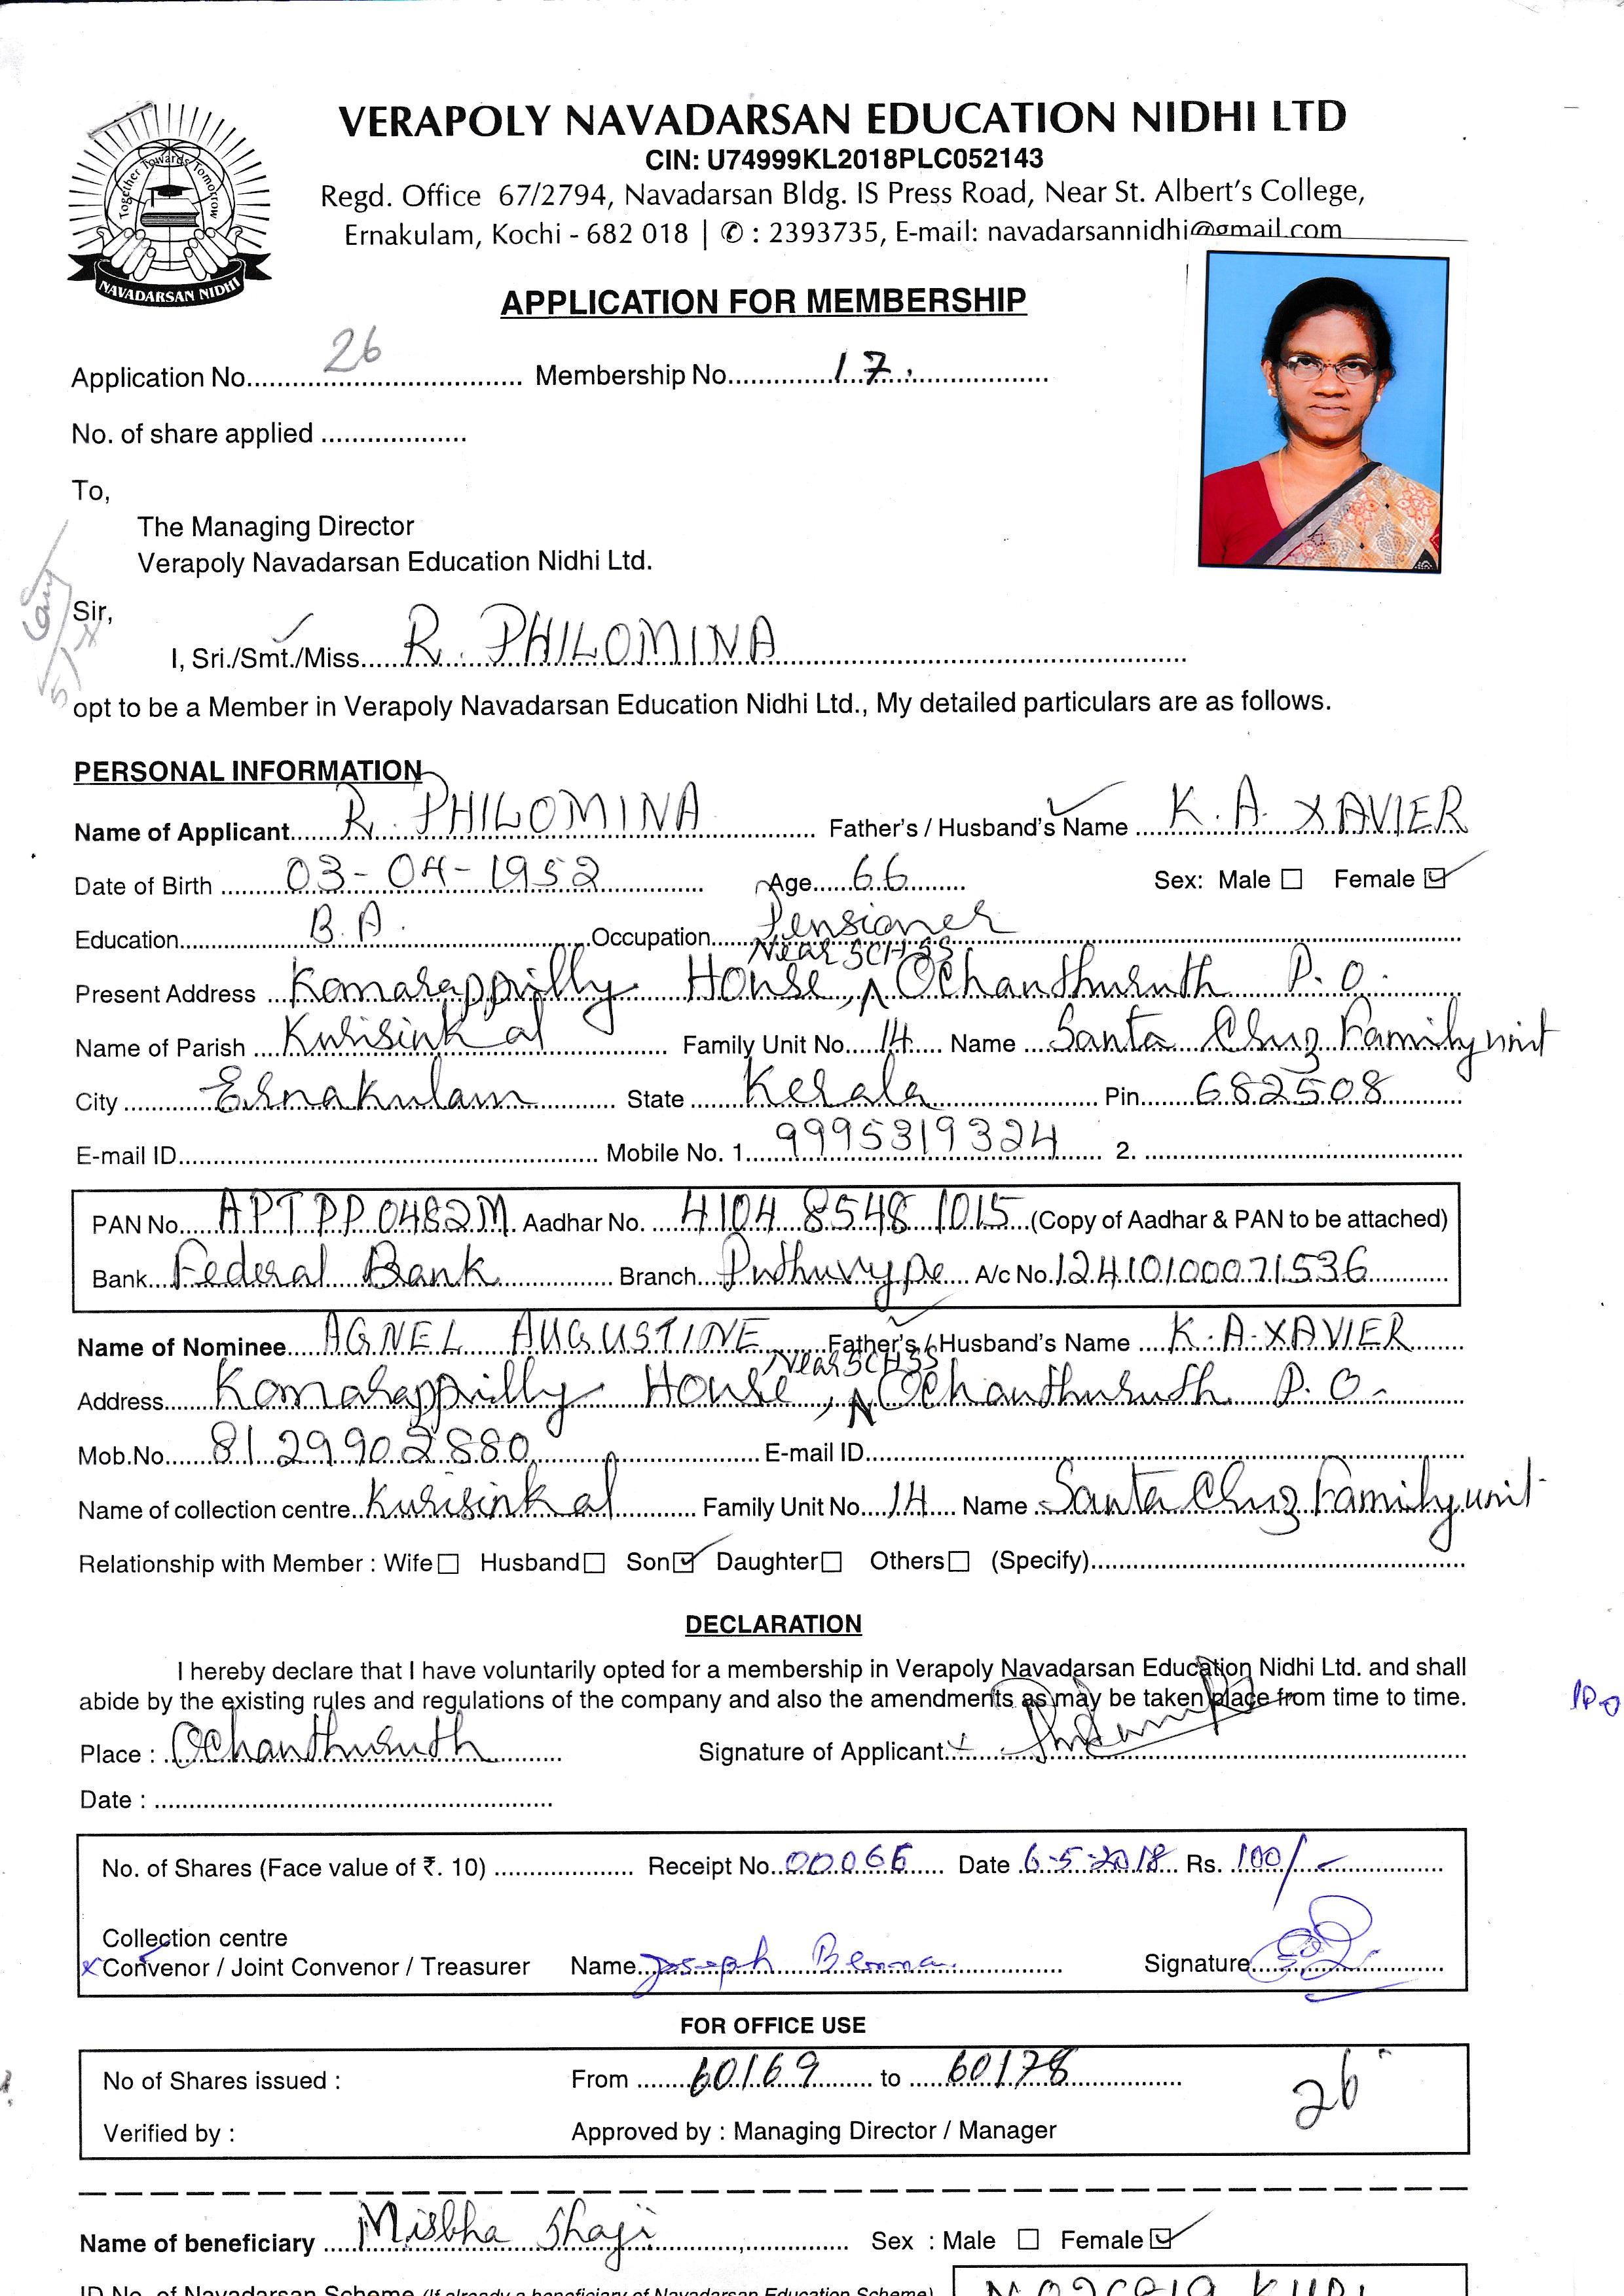 VERAPOLY NAVADARSAN EDUCATION NIDHI LTD
CIN: U74999KL2018PLC052143
Regd. Office 67/2794, Navadarsan Bldg. IS Press Road, Near St. Albert's College,
Ernakulam, Kochi - 682 018 | ✆ : 2393735, E-mail: navadarsannidhi@gmail.com
Together Towards Tomorrow
NAVADARSAN NIDHI
APPLICATION FOR MEMBERSHIP
Application No. 26 Membership No. 17.
No. of share applied
To,
The Managing Director
Verapoly Navadarsan Education Nidhi Ltd.
Sir,
I, Sri./Smt./Miss. R. PHILOMINA
opt to be a Member in Verapoly Navadarsan Education Nidhi Ltd., My detailed particulars are as follows.
PERSONAL INFORMATION
Name of Applicant R. PHILOMINA Father's / Husband's Name K. A. XAVIER
Date of Birth 03-04-1952 Age 66 Sex: Male ☐ Female ☑
Education B.A. Occupation Pensioner
Near SCHSS
Present Address Komarappilly House, Ochanthuruth P.O.
Name of Parish Kurisinkal Family Unit No. 14 Name Santa Cruz Family unit
City Ernakulam State Kerala Pin 682508
E-mail ID Mobile No. 1. 9995319324 2.
PAN No. APTPP0482M Aadhar No. 4104 8548 1015 (Copy of Aadhar & PAN to be attached)
Bank Federal Bank Branch Puthuvype A/c No. 12410100071536
Name of Nominee AGNEL AUGUSTINE Father's / Husband's Name K.A.XAVIER
Near SCHSS
Address Komarappilly House, Ochanthuruth P.O.
Mob.No. 8129902880 E-mail ID
Name of collection centre Kurisinkal Family Unit No. 14 Name Santa Cruz Family unit
Relationship with Member : Wife ☐ Husband ☐ Son ☑ Daughter ☐ Others ☐ (Specify)
DECLARATION
I hereby declare that I have voluntarily opted for a membership in Verapoly Navadarsan Education Nidhi Ltd. and shall
abide by the existing rules and regulations of the company and also the amendments as may be taken place from time to time.
Place : Ochanthuruth Signature of Applicant
Date :
No. of Shares (Face value of ₹. 10) Receipt No. 00066 Date 6-5-2018 Rs. 100/-
Collection centre
Convenor / Joint Convenor / Treasurer Name Joseph Signature
FOR OFFICE USE
No of Shares issued : From 60169 to 60178
26
Verified by : Approved by : Managing Director / Manager
Name of beneficiary Misbha Shaji Sex : Male ☐ Female ☑
ID No. of Navadarsan Scheme (If already a beneficiary of Navadarsan Education Scheme)